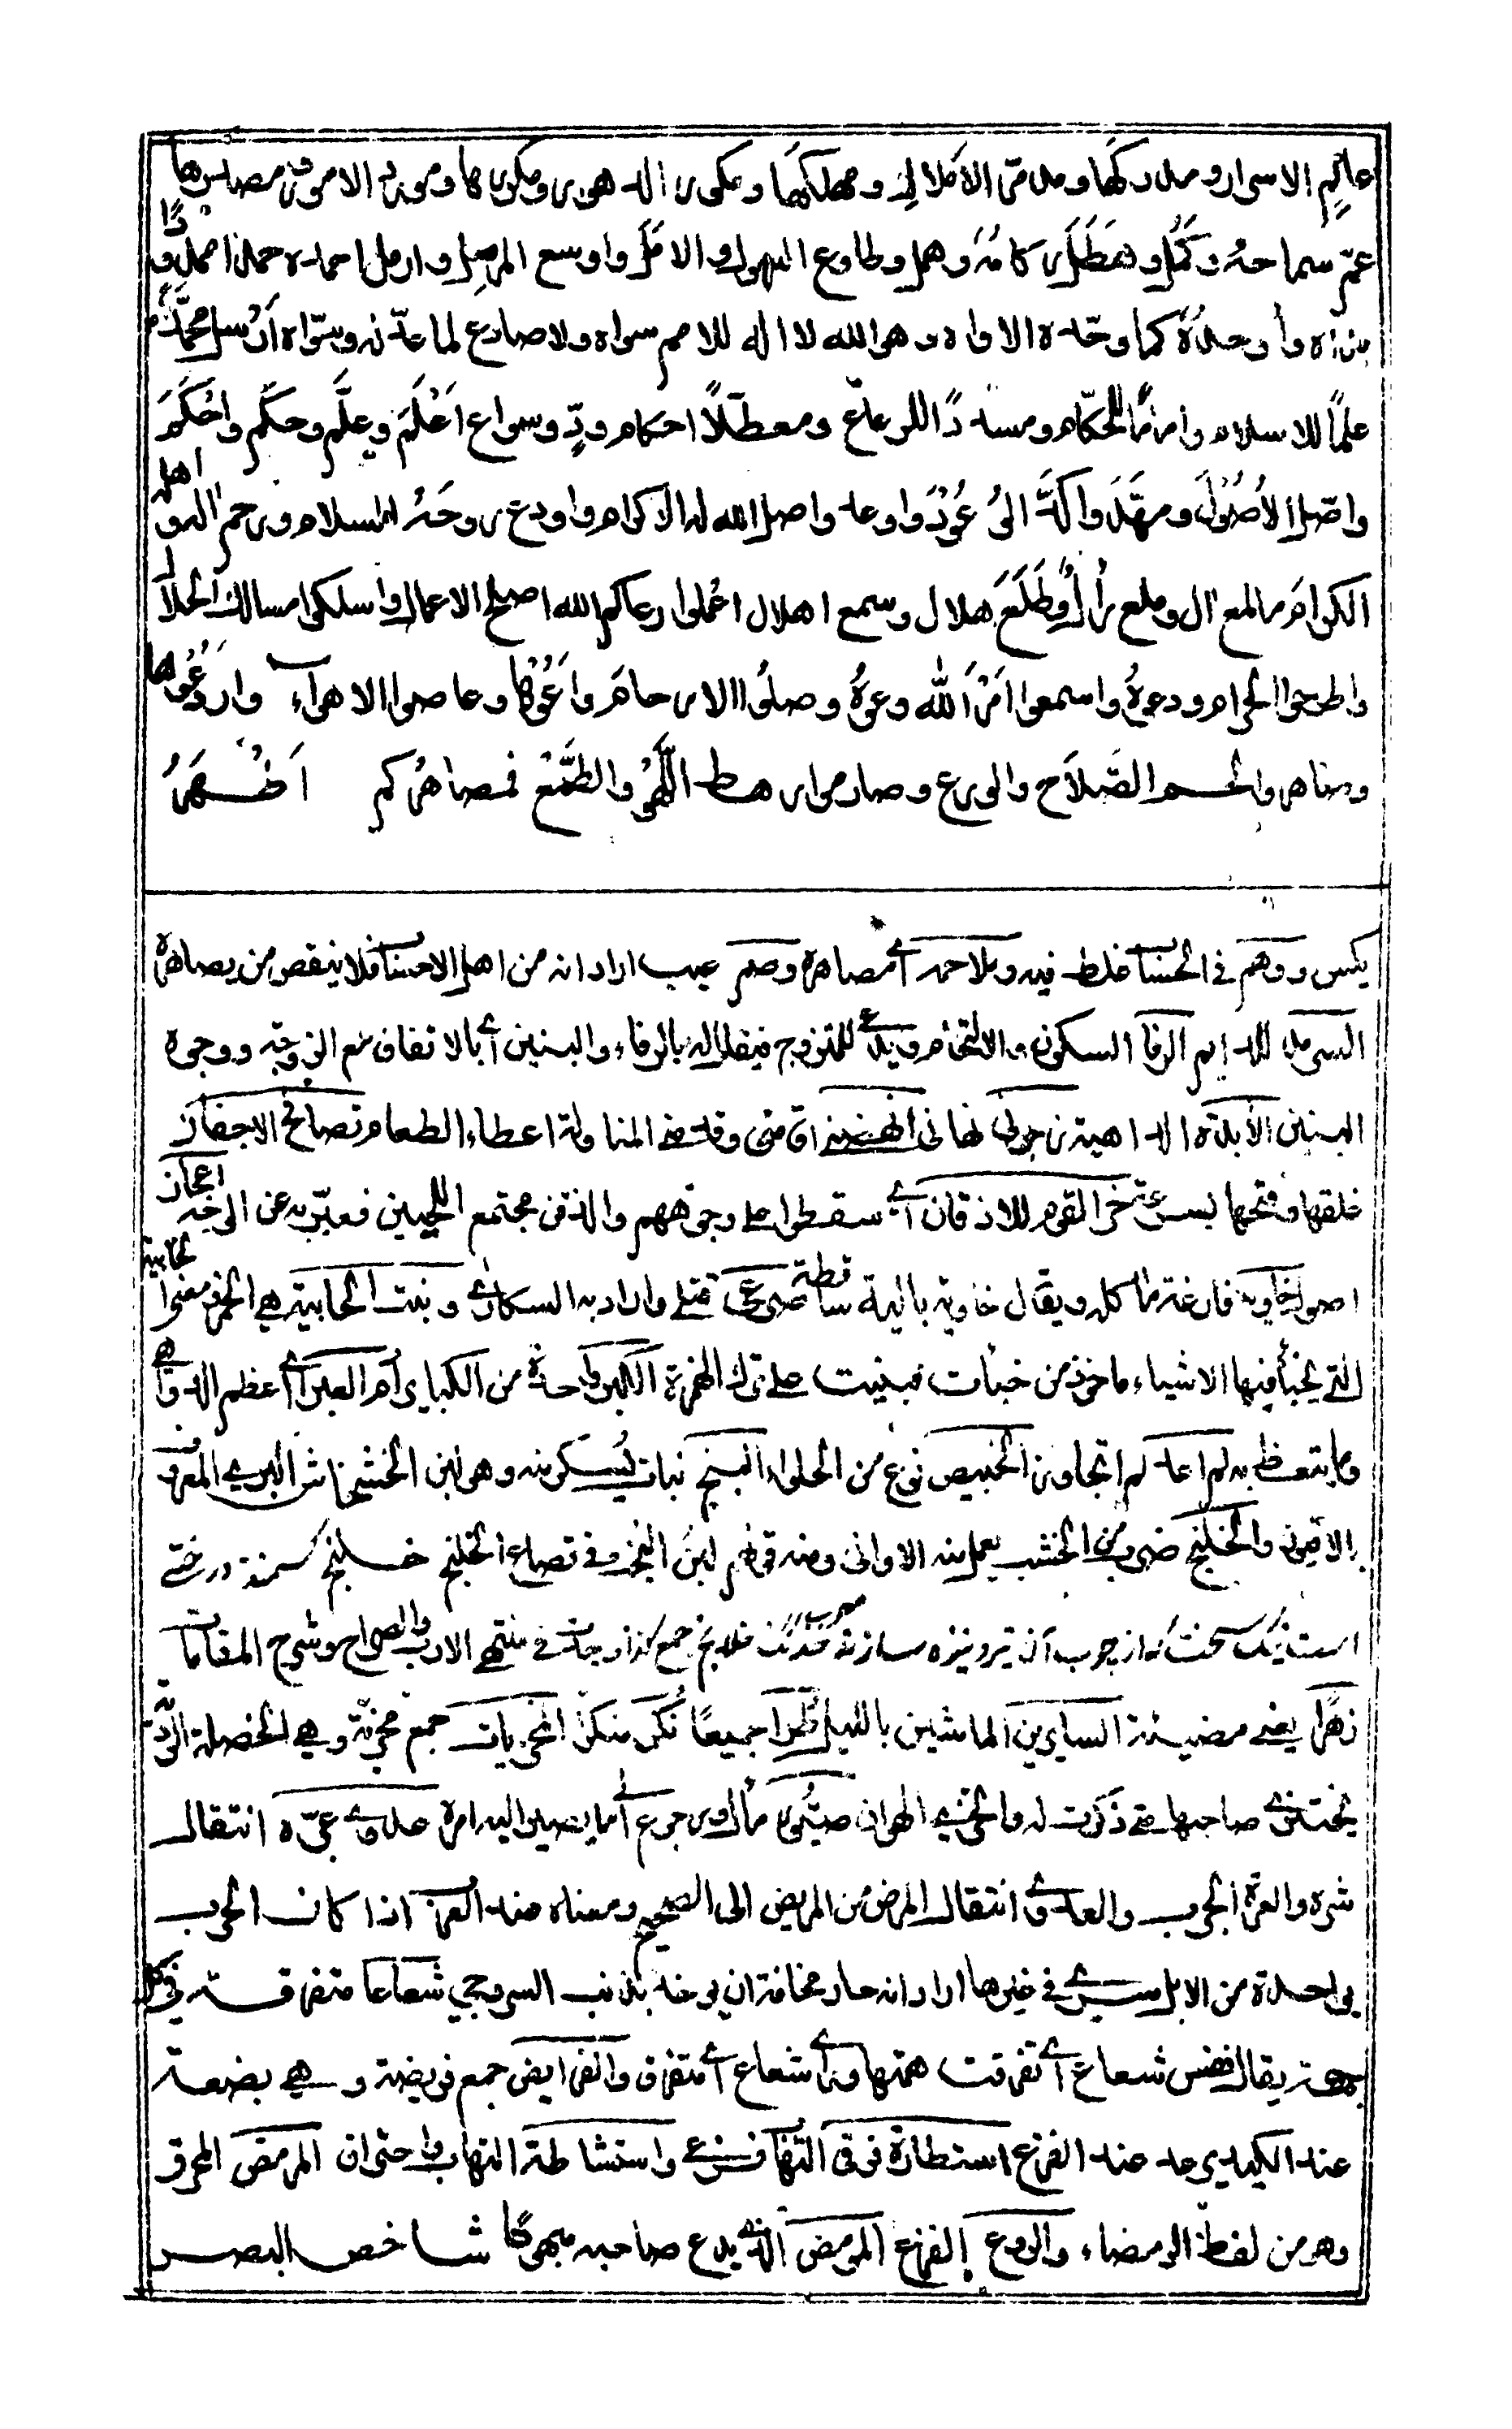 عالم الاسرار ومدركها ومدمر الاملاك ومهلكها ومكور الدهور ومكررها ومورد الامور ومصدرها
عم سماحه وكمل وهطل ركامه وهمل وطاوع السول والامل واوسع المرمل والارمل احمده حمدا ممدودا
مداه واوحده كما وحده الاواه وهو الله لا اله للامم سواه ولا صادع لما عدله وسواه ارسل محمدا
علما للاسلام واماما للحكام ومسددا للرعاع ومعطلا احكام ود وسواع اعلم وعلم وحكم واحكم
واصل الاصول ومهد واكد الوعود واوعد واصل الله له الاكرام واودع روحه السلام ورحم اله واهله
الكرام ما لمع ال وملع رال وطلع هلال وسمع اهلال اعملوا رعاكم الله اصلح الاعمال واسلكوا مسالك الحلال
واطرحوا الحرام ودعوه واسمعوا امر الله وعوه وصلوا الارحام وراعوها وعاصوا الاهواء واردعوها
وصاهروا لحم الصلاح والورع وصارموا رهط اللهو والطمع فمصاهركم اطهر
يكس ووهم في الحساب غلط فيه وملاحمه اي مصاهره وصم عيب اراد انه من اهل الاحساب فلا ينقص من يصاهره
السرمد للابد الرفا السكون والالتحام ويدعى للمتزوج فيقال له بالرفاء والبنين اي بالاتفاق مع الزوجة ووجود
البنين الأبدة الداهية نهاني المناولة اعطاء الطعام تصافح الاجفان
غلقها وفتحها بسرعة خر القوم للاذقان اي سقطوا على وجوههم والذقن مجتمع اللحيين فعبر به عن الوجه اعجاز
اصول خاوية فارغة تاكله ويقال خاوية بالية ساقطة صرعى قتلى واراد به السكارى وبنت الخابية هي الخمر
التي يخبأ فيها الاشياء ماخوذ من خبأت فبنيت على ترك الهمزة الكبر واحدة من الكباير ام العبر اي اعظم الدواهي
وما يتعظ به لم اعد لم اتجاوز الخبيص نوع من الحلواء البنج نبات يسكر منه وهو لبن الخشخاش البري المعروف
بالافيون والخلنج ضرب من الخشب يعمل منه الاواني ومنه قولهم لبن البخت في قصاع الخلنج خلنج درختي
است نيك سخت كه از چوب آن تير ونيزه سازند معرب خدنگ خلانج جمع كذا وجدت في منتهى الادب والصراح وشرح المقامات
زهرا يعني مضيئة السايرين الماشين بالليل طرا جميعا نكر منكرا المخزيات جمع مخزية وهي الخصلة الردية
يختزي صاحبها متى ذكرت له والخزي الهوان صيور مآل ورجوع اي ما يصير اليه امره عدوى عره انتقال
شره والعر الجرب والعدوى انتقال المرض من المريض الى الصحيح ومعناه عند العرب اذا كان الجرب
بواحدة من الابل سرى في غيرها اراد انه حار مخافة ان يوخذ بذنب السروجي شعاعا متفرقة في كل
جهة يقال نفس شعاع اي تفرقت همتها وراي شعاع اي متفرق والفرايص جمع فريصة وهي بضعة
عند الكبد يرعد عند الفزع استطارة فرقي التهاب فزعي واستشاطة التهاب واحتراق المرمض المحرق
وهو من لفظ الرمضاء والروع الفزع المومض الذي يدع صاحبه مبهوتا شاخص البصر